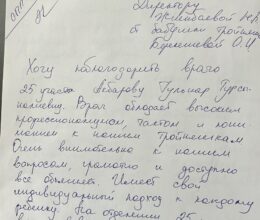 Директору
от бабушки тройняшек
Хочу поблагодарить врача
25 участка Абарову Гульнар Турсу-
Врач обладает высоким
профессионализмом, тактом и пони-
манием к нашим тройняшкам
Очень внимательно к нашим
вопросам, грамотно и доступно
все объясняет. Имеет свой
индивидуальный подход к каждому
ребенку. На отделении 25